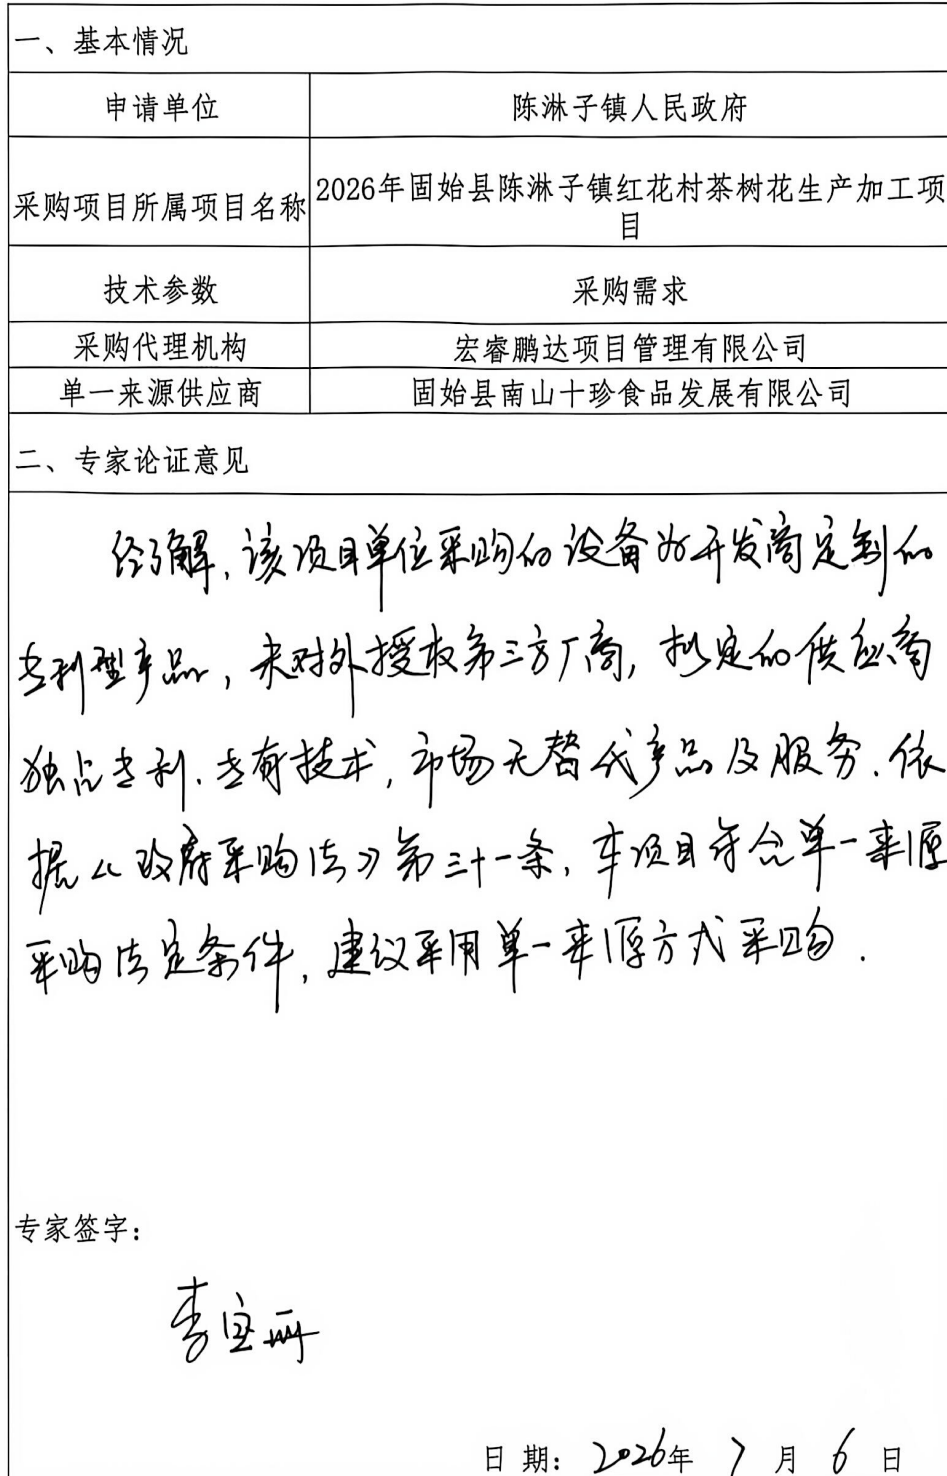 一、基本情况
申请单位 陈淋子镇人民政府
采购项目所属项目名称 2026年固始县陈淋子镇红花村茶树花生产加工项
目
技术参数 采购需求
采购代理机构 宏睿鹏达项目管理有限公司
单一来源供应商 固始县南山十珍食品发展有限公司
二、专家论证意见
经了解,该项目单位采购的设备为开发商定制的
专利型产品,未对外授权第三方厂商,拟定的供应商
独占专利.专有技术,市场无替代产品及服务.依
据《政府采购法》第三十一条,本项目符合单一来源
采购法定条件,建议采用单一来源方式采购.
专家签字:
李宜
日期: 2026年 7 月 6 日